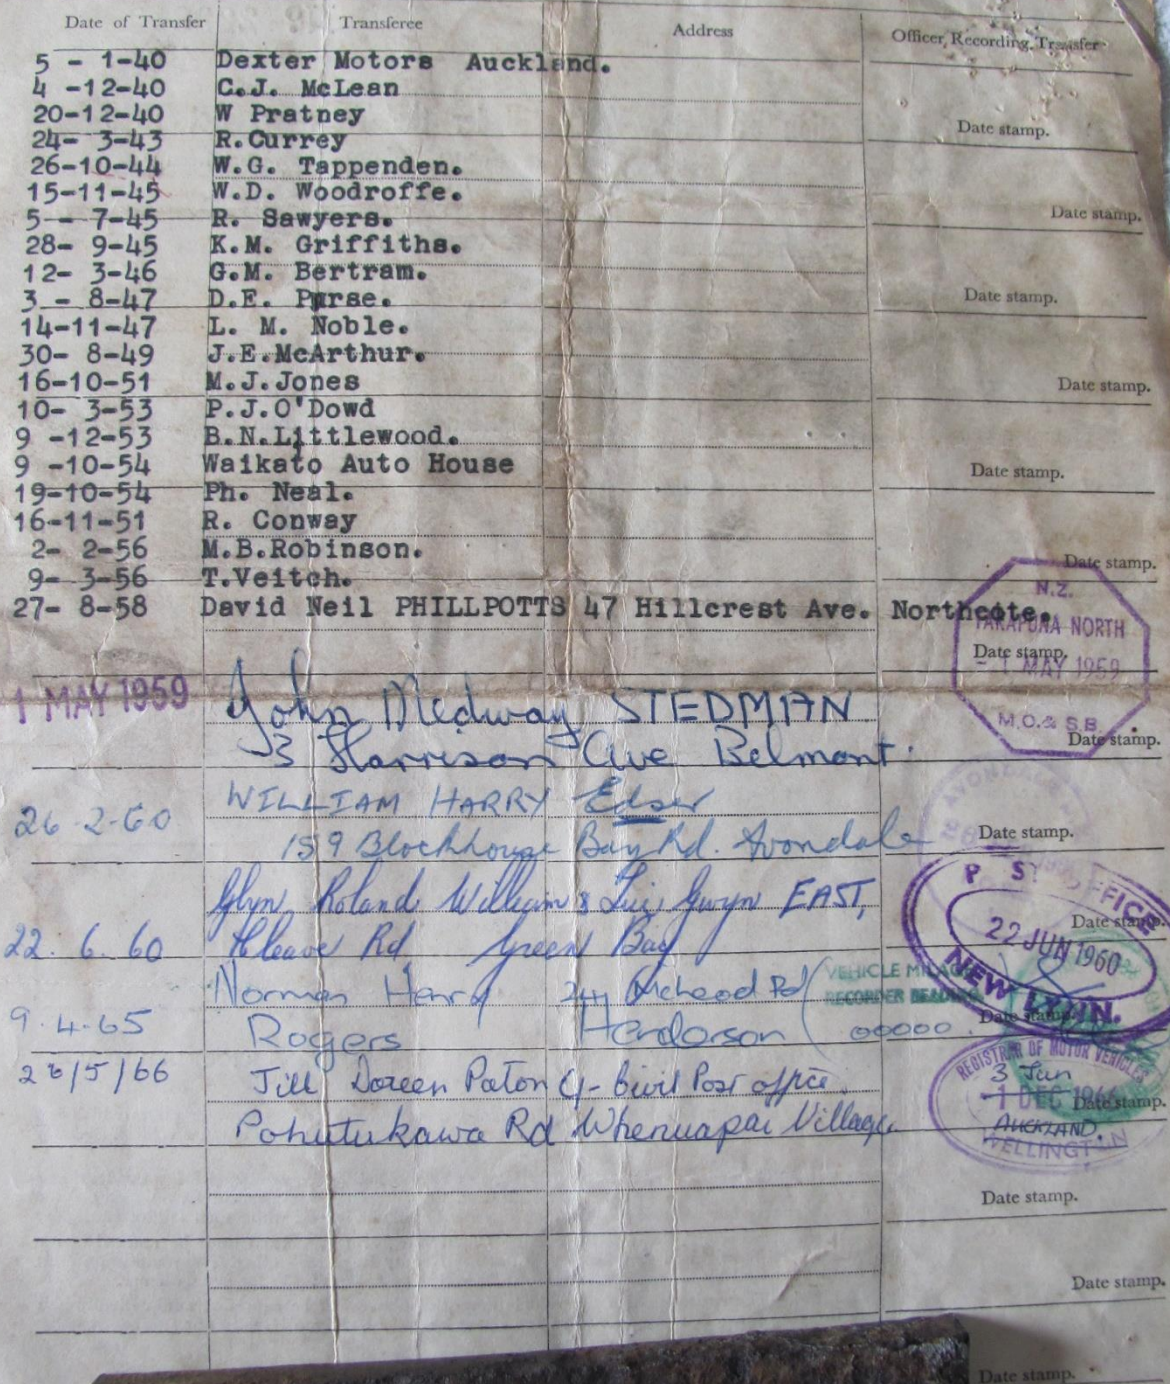 Date of Transfer Transferee Address Officer Recording Transfer
5 - 1-40 Dexter Motors Auckland.
4 -12-40 C.J. McLean
20-12-40 W Pratney
24- 3-43 R.Currey
Date stamp.
26-10-44 W.G. Tappenden.
15-11-45 W.D. Woodroffe.
5 - 7-45 R. Sawyers.
Date stamp.
28- 9-45 K.M. Griffiths.
12- 3-46 G.M. Bertram.
3 - 8-47 D.E. Purse.
Date stamp.
14-11-47 L. M. Noble.
30- 8-49 J.E.McArthur.
16-10-51 M.J.Jones
Date stamp.
10- 3-53 P.J.O'Dowd
9 -12-53 B.N.Littlewood.
9 -10-54 Waikato Auto House
Date stamp.
19-10-54 Ph. Neal.
16-11-51 R. Conway
2- 2-56 M.B.Robinson.
Date stamp.
9- 3-56 T.Veitch.
27- 8-58 David Neil PHILLPOTTS 47 Hillcrest Ave. Northcote.
N.Z.
TAKAPUNA NORTH
Date stamp.
- 1 MAY 1959
M.O.& S.B.
1 MAY 1959 John Medway STEDMAN
3 Harrison Ave Belmont.
Date stamp.
WILLIAM HARRY Edser
26-2-60 159 Blockhouse Bay Rd. Avondale
AVONDALE
Date stamp.
Glyn Roland William & Gwyn EAST,
22. 6. 60 Rd Green Bay
Date stamp.
POST OFFICE
22 JUN 1960
NEW LYNN.
Norman Henry McLeod Rd
VEHICLE MILAGE
RECORDER READING
9.4.65 Rogers Henderson 00000
Date stamp.
26/5/66 Jill Doreen Paton C/- Civil Post office
Pohutukawa Rd Whenuapai Village
REGISTRAR OF MOTOR VEHICLES
3 Jun
- 1 DEC 196
Date stamp.
AUCKLAND.
WELLINGTON
Date stamp.
Date stamp.
Date stamp.